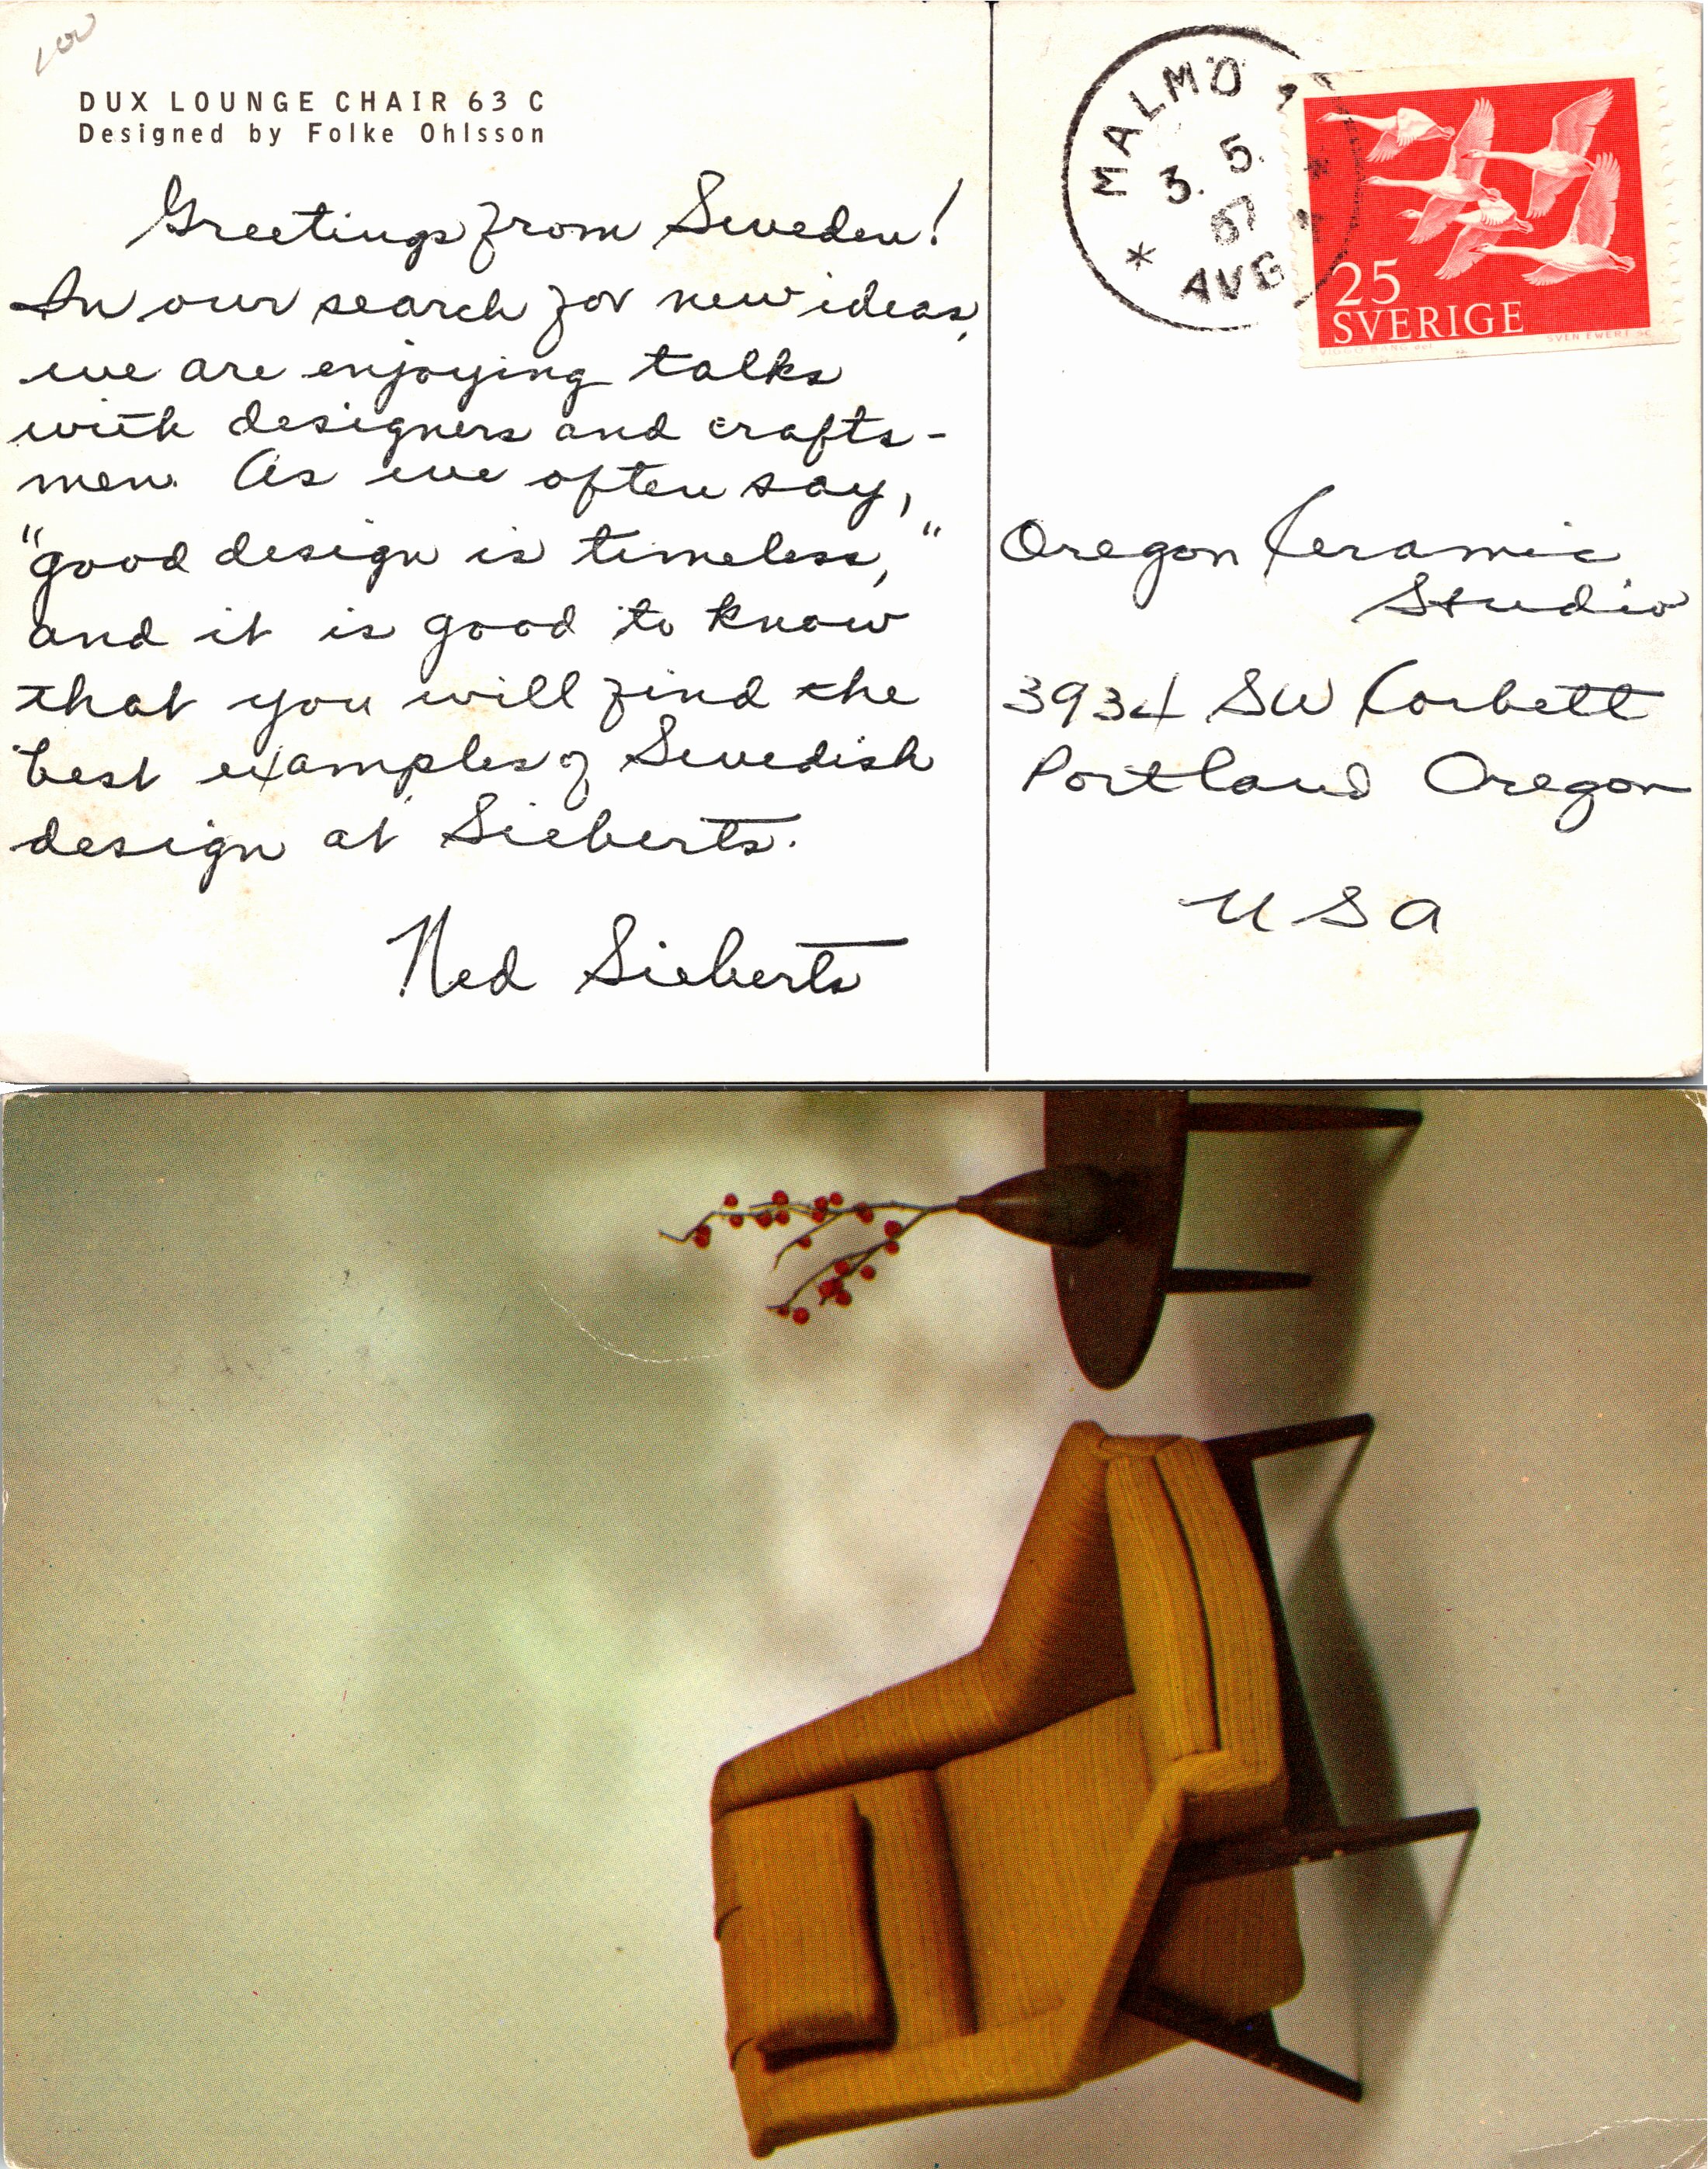 DUX LOUNGE CHAIR 63 C
Designed by Folke Ohlsson
Greetings from Sweden!
In our search for new ideas,
we are enjoying talks
with designers and crafts-
men. As we often say,
"good design is timeless,"
and it is good to know
that you will find the
best examples of Swedish
design at Sieberts.
Ned Sieberts
MALMÖ 1
3. 5.
57
AVG
25
SVERIGE
SVEN EWERT SC
Oregon Ceramic
Studio
3934 SW Corbett
Portland Oregon
USA